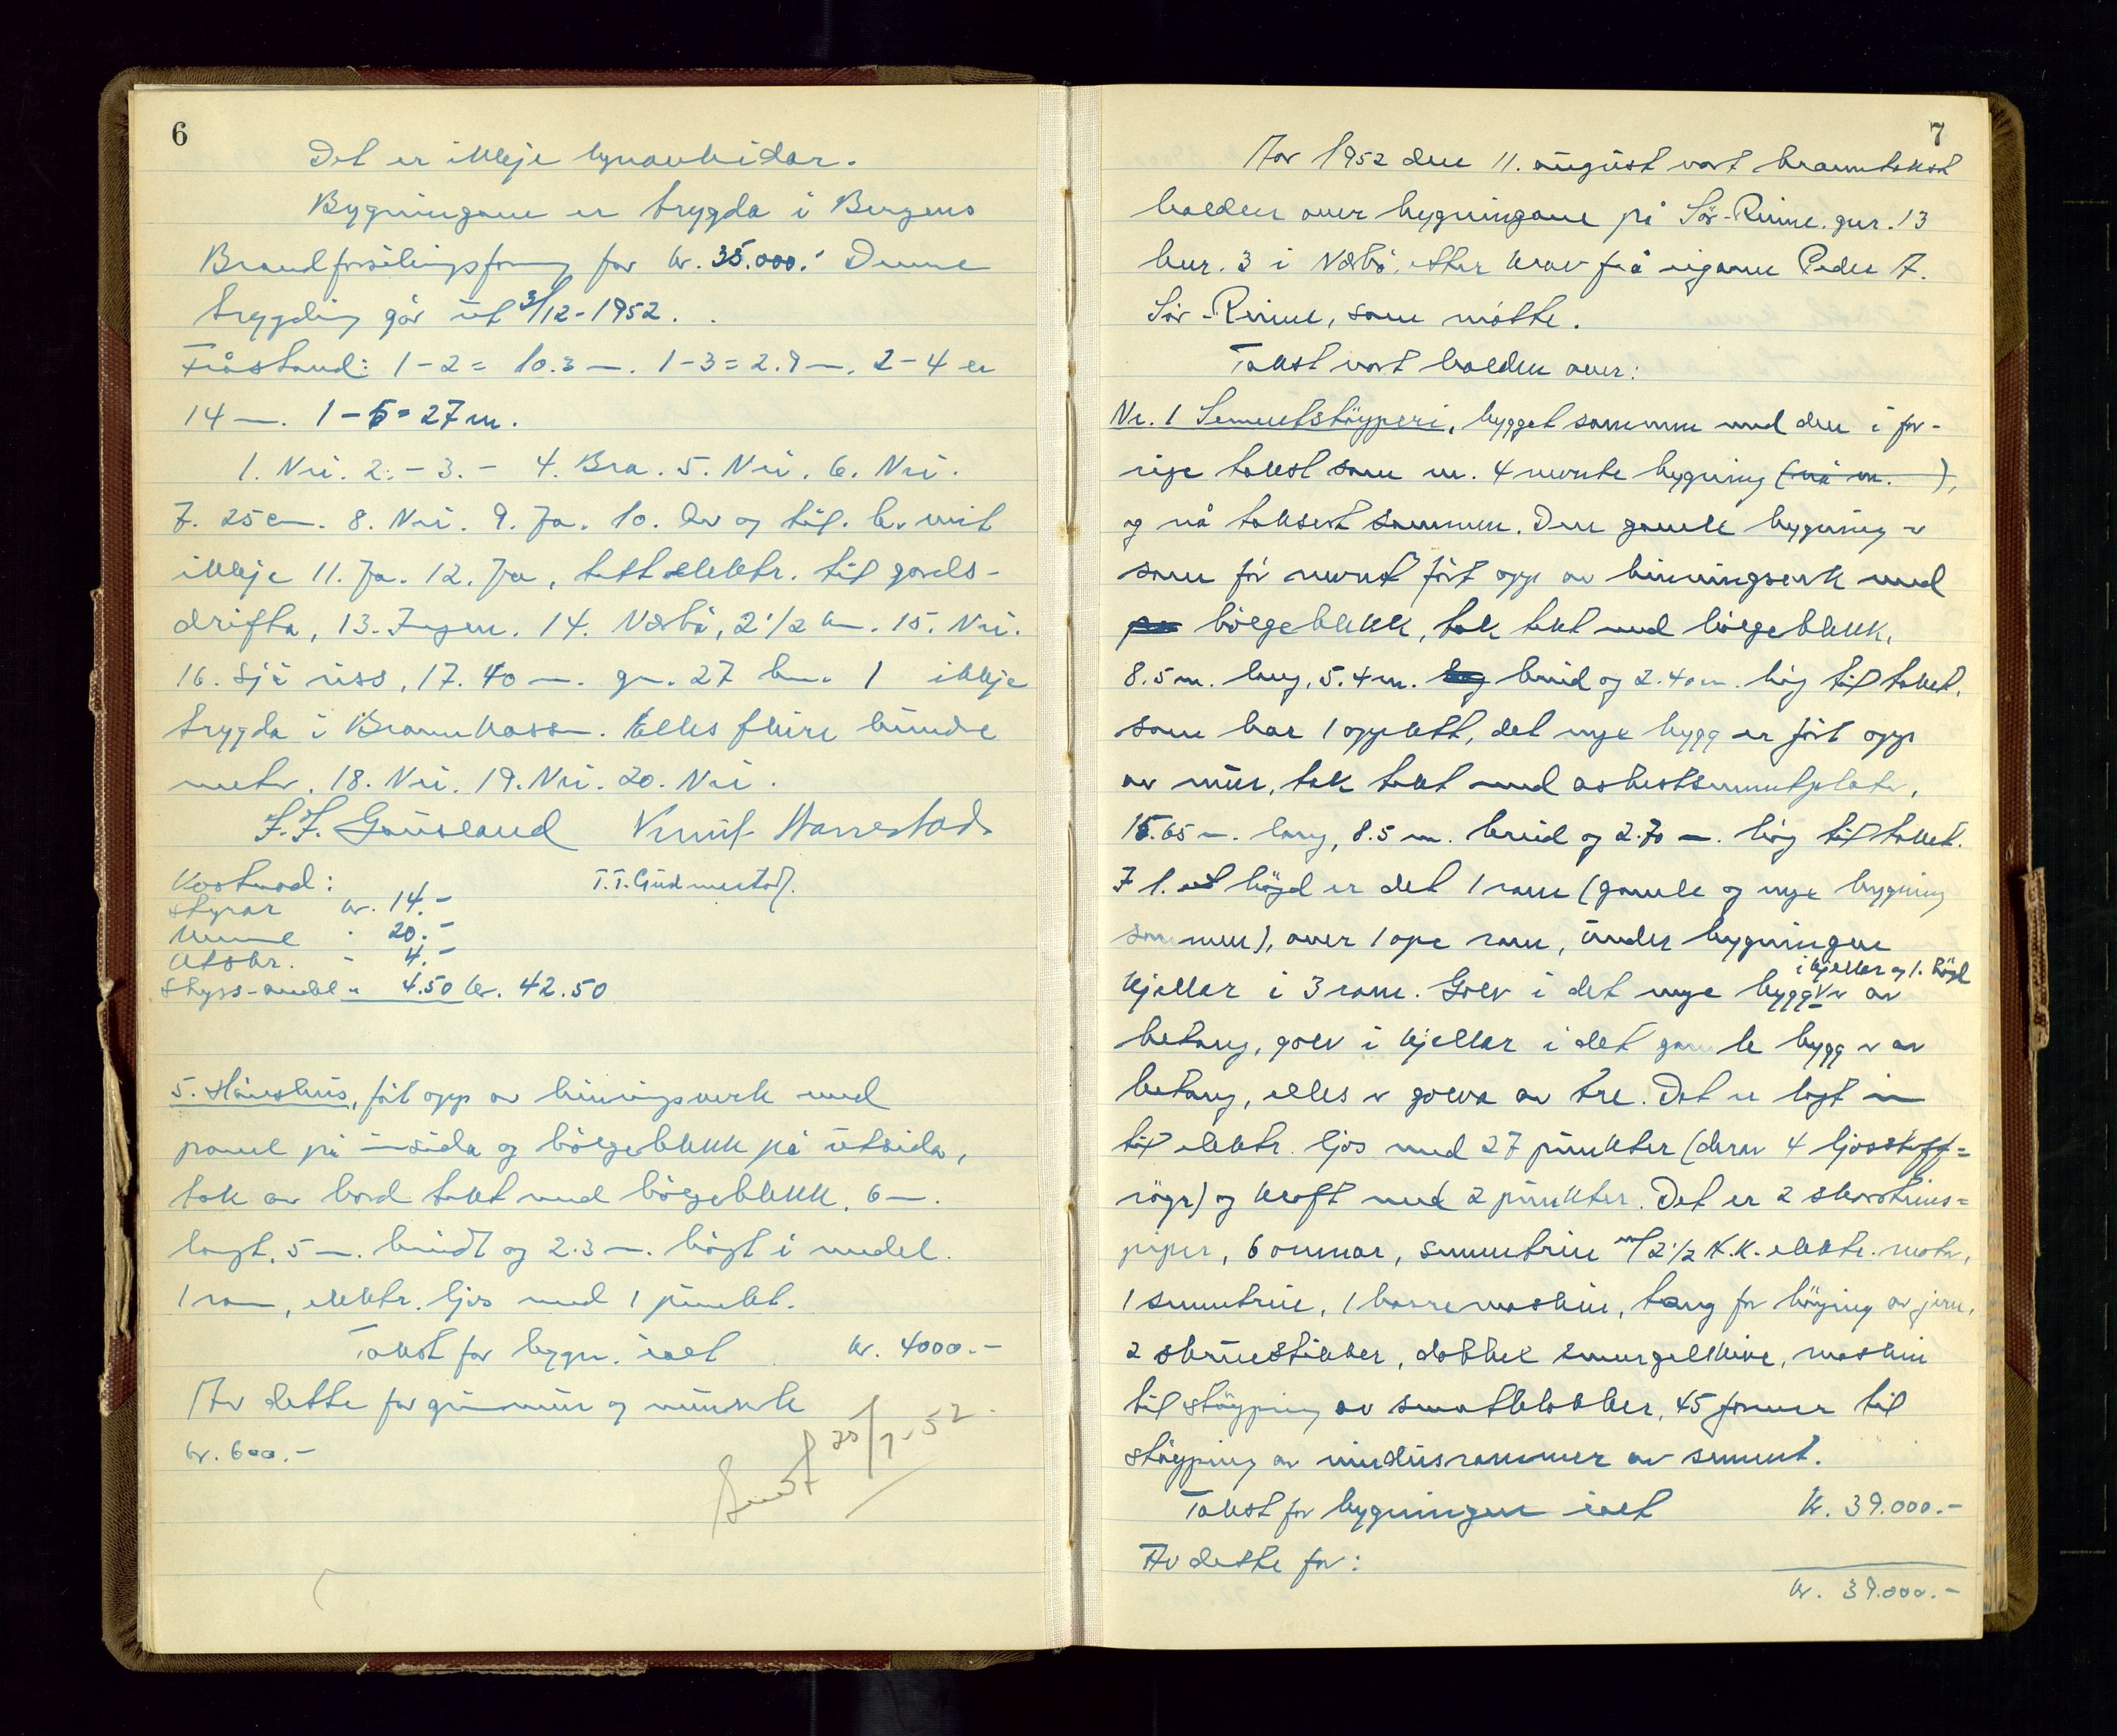 6
Det er ikkje lynavleidar.
Bygningane er trygda i Bergens
Brandforsikringsforeng for kr. 35.000.- Denne
trygding går ut 31/12-1952.
Fråstand: 1-2 = 10.3 m. 1-3 = 2.9 m. 2-4 er
14 m. 1-5 = 27 m.
1. Nei. 2. - 3. - 4. Bra. 5. Nei. 6. Nei.
7. 25 cm. 8. Nei. 9. Ja. 10. og til.
ikkje 11. Ja. 12. Ja, tatt elektr. til gards-
drifta, 13. Ingen. 14. Nærbø, 2 1/2 km. 15. Nei.
16. Sjå riss, 17. 40 m. gn. 27 bn. 1 ikkje
trygda i Brannkassen. Elles fleire hundre
meter. 18. Nei. 19. Nei. 20. Nei.
Gausland Harrestad.
Kostnad: T. T. Gudmestad.
Styrar kr. 14.-
Menne " 20.-
Utskr. " 4.-
Skyss-andel " 4.50 kr. 42.50
5. Hønsehus, ført opp av bindingsverk med
panel på innsida og bølgeblekk på utsida,
tak av bord tekt med bølgeblekk. 6 m.
langt, 5 m. breidt og 2.3 m. høgt i medel.
1 rom, elektr. ljos med 1 punkt.
Takst for bygn. ialt kr. 4000.-
Av dette for grunnmur og murverk
kr. 600.-
Sendt 25/9-52
7
År 1952 den 11. august vart branntakst
halden over bygningane på Sør-Reime. gnr. 13
bnr. 3 i Nærbø, etter krav frå eigaren Peder A.
Sør-Reime, som møtte.
Takst vart halden over:
Nr. 1 Sementstøyperi, bygget sammen med den i for-
rige takst som nr. 4 nevnte bygning (nå nr. ),
og nå taksert sammen. Den gamle bygning er
som før nevnt ført opp av bindingsverk med
bølgeblekk, tak tekt med bølgeblekk,
8.5 m. lang, 5.4 m. breid og 2.40 m. høg til taket,
som har 1 opplett, det nye bygg er ført opp
av mur, tak tekt med asbestsementplater,
15.65 m. lang, 8.5 m. breid og 2.70 m. høg til taket.
I 1. høgd er det 1 rom (gamle og nye bygning
sammen), over 1 ope rom, under bygningen
kjellar i 3 rom. Golv i det nye bygg i kjellar og 1. høgd er av
betong, golv i kjellar i det gamle bygg er av
betong, elles er golva av tre. Det er lagt inn
til elektr. ljos med 27 punkter (derav 4 ljosstoff=
røyr) og kraft med 2 punkter. Det er 2 skorsteins=
piper, 6 omnar, sementrie m/ 2 1/2 H.K. elektr. motor,
1 sementrie, 1 borremaskin, tang for bøying av jern,
2 skruestikker, dobbel smergelskive, maskin
til støyping av sementblokker, 45 former til
støyping av vindusrammer av sement.
Takst for bygningen ialt kr. 39.000.-
Av dette for:
kr. 39.000.-